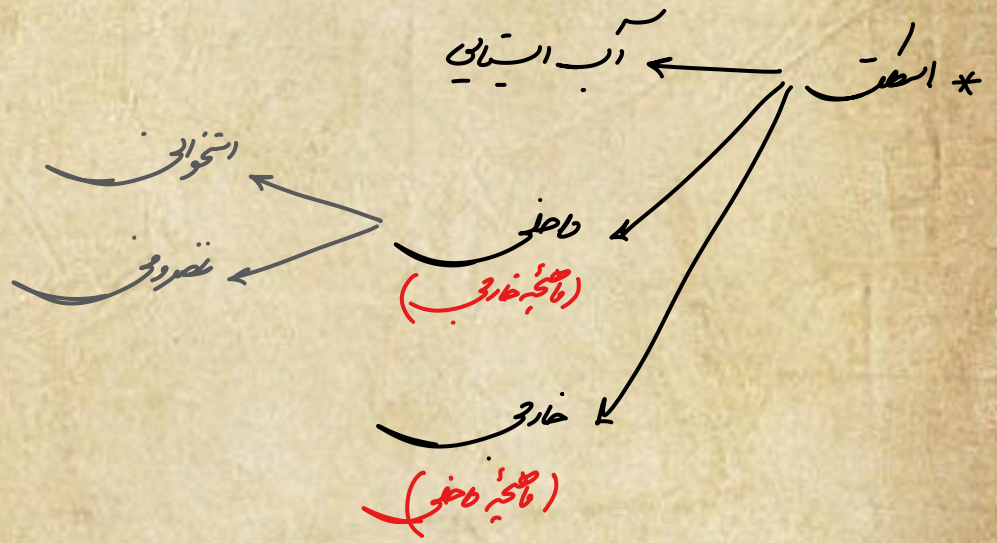 * اسکلت
آب ایستایی
داخلی
(ماهیچه خارجی)
استخوانی
غضروفی
خارجی
(ماهیچهٔ داخلی)